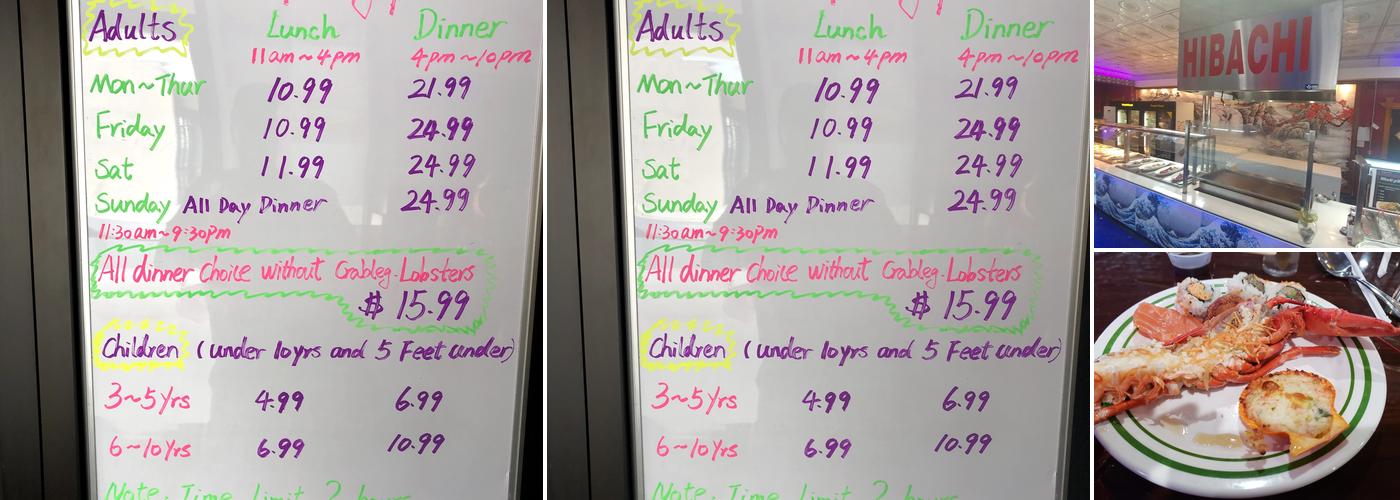 Adults Lunch Dinner
11am~4pm 4pm~10pm
Mon~Thur 10.99 21.99
Friday 10.99 24.99
Sat 11.99 24.99
Sunday All Day Dinner 24.99
11:30am~9:30pm
All dinner Choice without Crableg. Lobsters
$ 15.99
Children (under 10yrs and 5 Feet under)
3~5yrs 4.99 6.99
6~10yrs 6.99 10.99
Note. Time limit 2 hours
Adults Lunch Dinner
11am~4pm 4pm~10pm
Mon~Thur 10.99 21.99
Friday 10.99 24.99
Sat 11.99 24.99
Sunday All Day Dinner 24.99
11:30am~9:30pm
All dinner Choice without Crableg. Lobsters
$ 15.99
Children (under 10yrs and 5 Feet under)
3~5yrs 4.99 6.99
6~10yrs 6.99 10.99
Note. Time limit 2 hours
HIBACHI